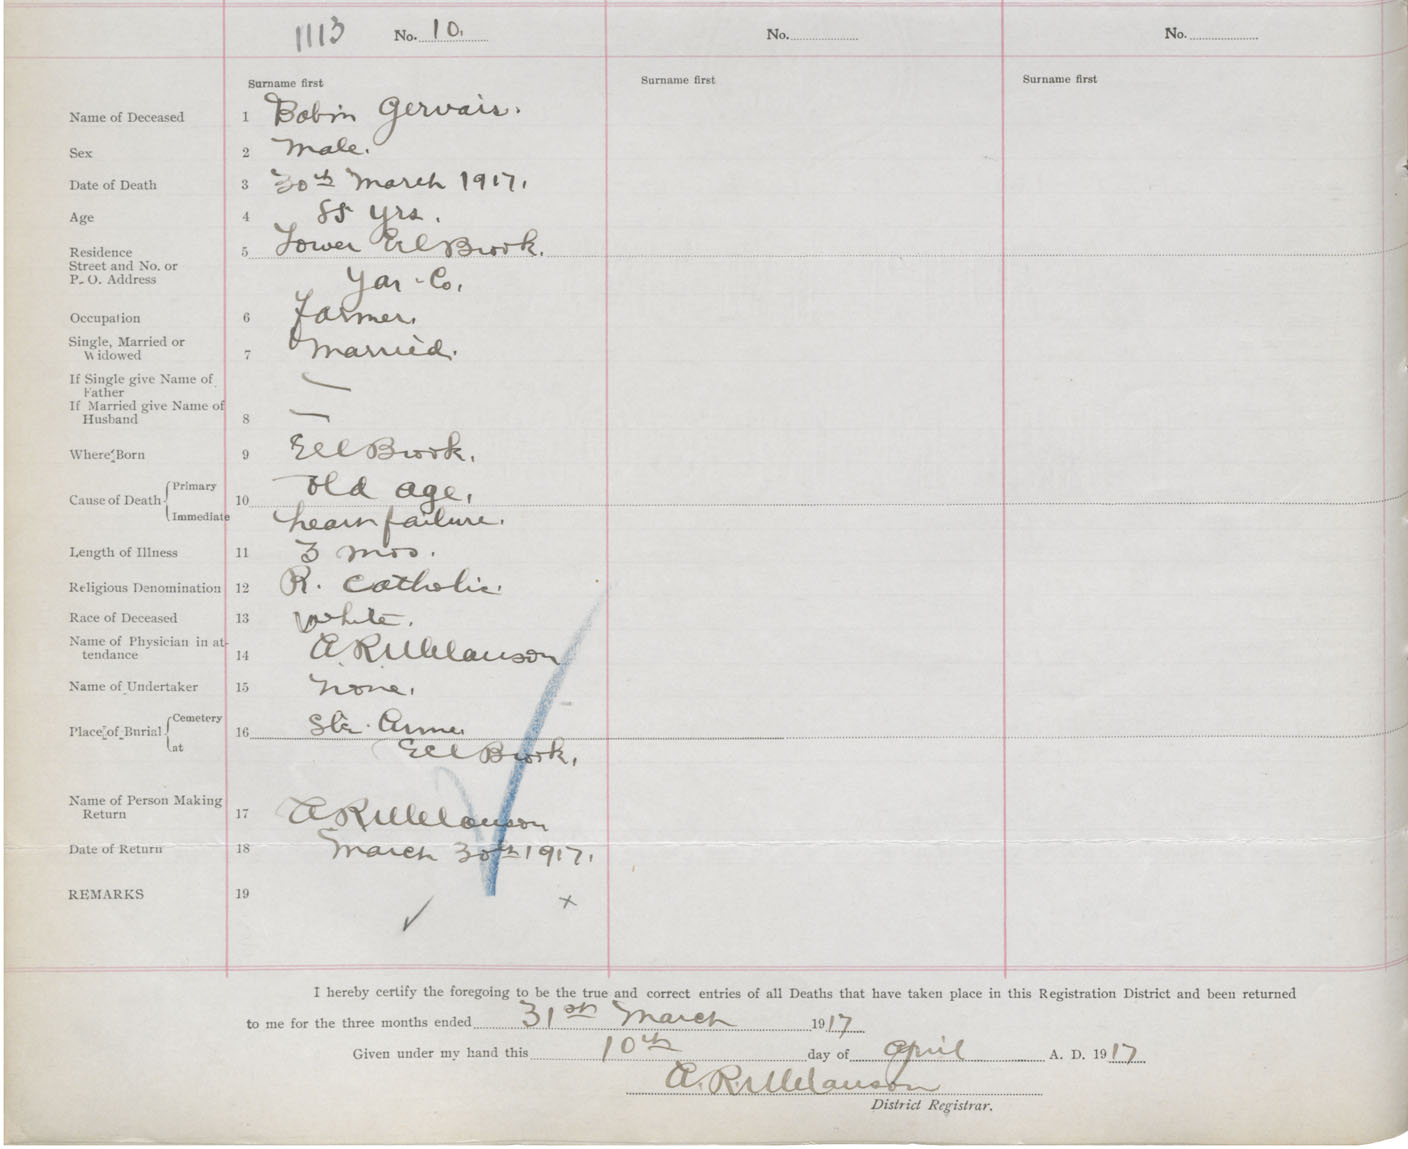 1113 No. 10. No. No.
Surname first Surname first Surname first
Name of Deceased 1 Bobin Gervais.
Sex 2 Male.
Date of Death 3 30th March 1917.
Age 4 85 yrs.
Residence 5 Lower Eel Brook.
Street and No. or
P. O. Address Yar - Co.
Occupation 6 Farmer.
Single, Married or
Widowed 7 Married.
If Single give Name of
Father —
If Married give Name of
Husband 8 —
Where Born 9 Eel Brook.
Cause of Death Primary 10 Old age,
Immediate heart failure.
Length of Illness 11 3 mos.
Religious Denomination 12 R. Catholic.
Race of Deceased 13 White.
Name of Physician in at-
tendance 14 A. R. Melanson
Name of Undertaker 15 None.
Place of Burial Cemetery 16 Ste. Anne
at Eel Brook.
Name of Person Making
Return 17 A. R. Melanson
Date of Return 18 March 30th 1917.
REMARKS 19
x
I hereby certify the foregoing to be the true and correct entries of all Deaths that have taken place in this Registration District and been returned
to me for the three months ended 31st March 1917
Given under my hand this 10th day of April A. D. 1917
A. R. Melanson
District Registrar.